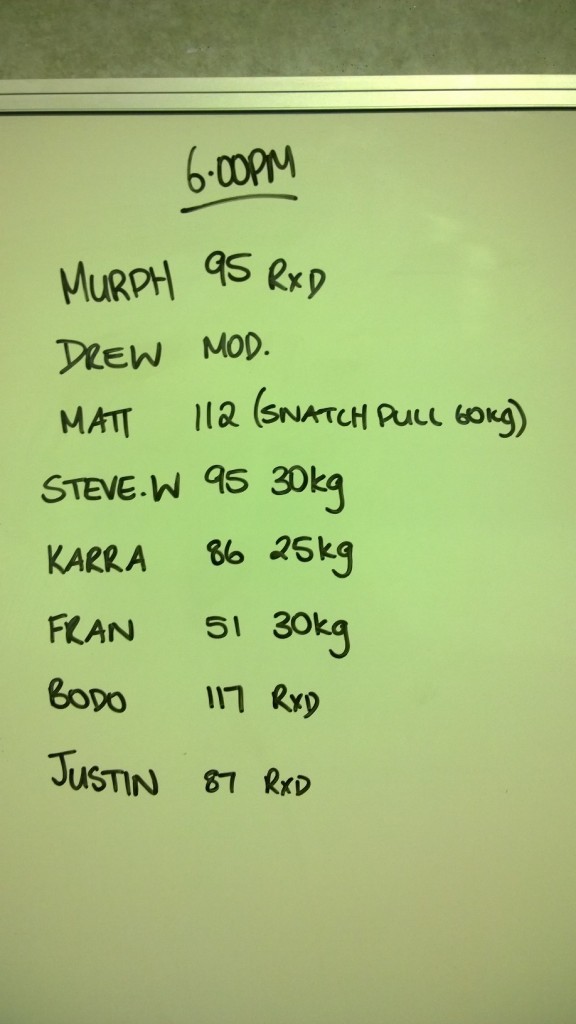 6.00PM
MURPH 95 RxD
DREW MOD.
MATT 112 (SNATCH PULL 60kg)
STEVE.W 95 30kg
KARRA 86 25kg
FRAN 51 30kg
BODO 117 RxD
JUSTIN 87 RxD